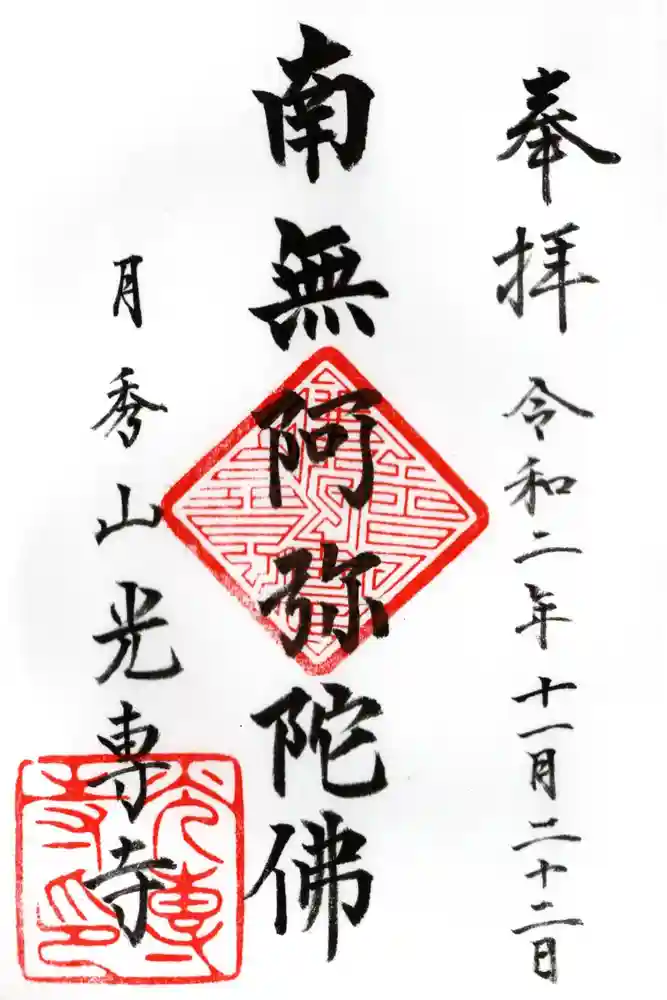 奉拝 令和二年 十一月二十二日
南無阿弥陀佛
月秀山 光専寺
光専寺印